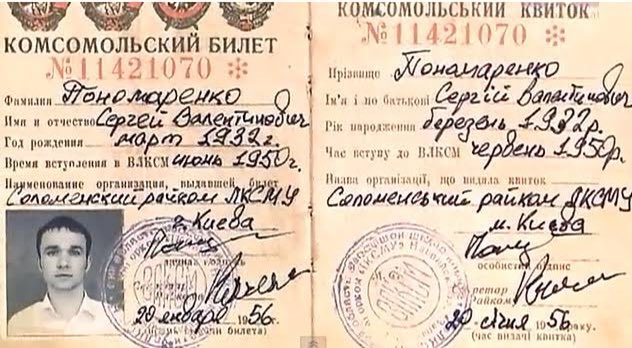 КОМСОМОЛЬСКИЙ БИЛЕТ
№ 11421070 *
Фамилия Пономаренко
Имя и отчество Сергей Валентинович
Год рождения март 1932 г.
Время вступления в ВЛКСМ июнь 1950 г.
Наименование организации, выдавшей билет
Соломенский райком ЛКСМУ
г. Киева
20 января 1956 г.
КОМСОМОЛЬСЬКИЙ КВИТОК
№ 11421070 *
Прізвище Пономаренко
Ім'я і по батькові Сергій Валентинович
Рік народження березень 1932 р.
Час вступу до ВЛКСМ червень 1950 р.
Назва організації, що видала квиток
Соломенський райком ЛКСМУ
м. Києва
особистий підпис
20 січня 1956 року.
(час видачі квитка)